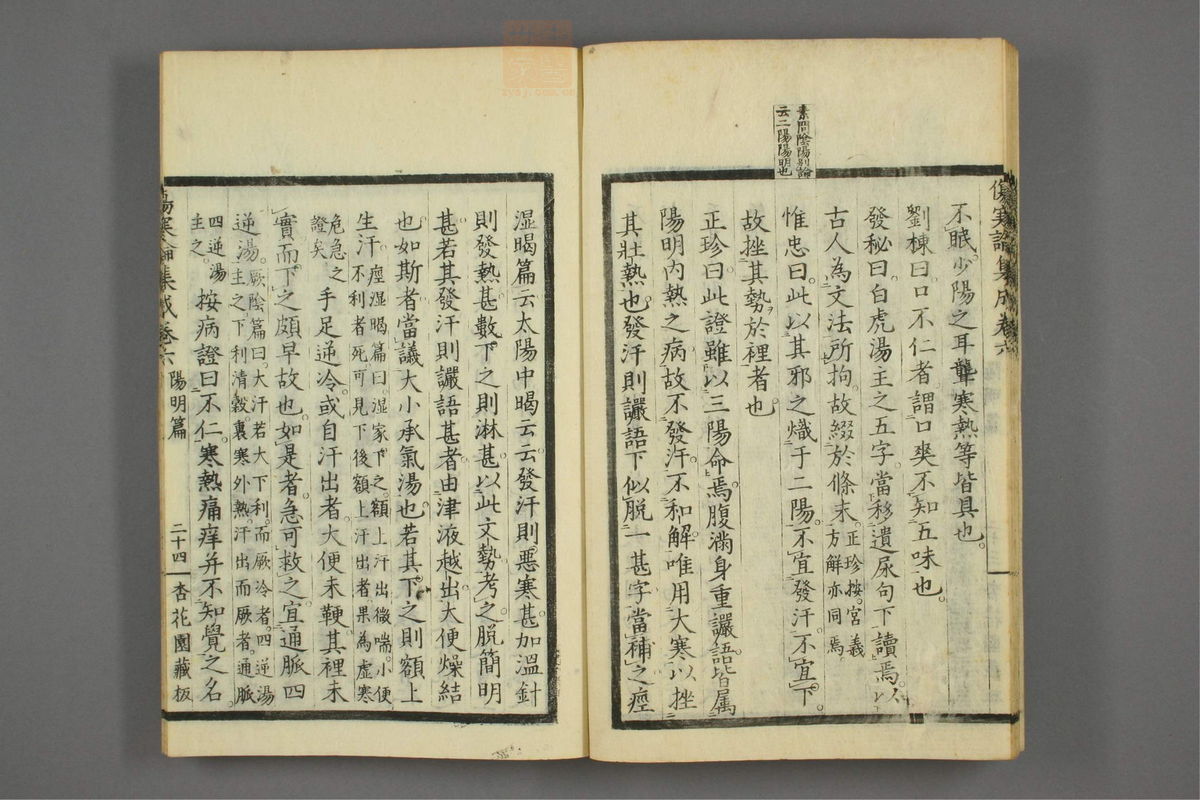 傷寒論集成卷六
素問陰陽別論
云二陽陽明也
不眠。少陽之耳聾寒熱等皆具也。
劉棟曰。口不仁者。謂口爽不知五味也。
發秘曰。白虎湯主之五字。當移遺尿句下讀焉。以
古人為文法所拘。故綴於條末。正珍按。宮義
方解亦同焉
惟忠曰。此以其邪之熾于二陽。不宜發汗。不宜下。
故挫其勢於裡者也
正珍曰。此證雖以三陽命焉。腹滿身重讝語。皆属
陽明內熱之病。故不發汗。不和解。唯用大寒。以挫
其壯熱也。發汗則讝語下。似脫一甚字。當補之。痙
湿暍篇云。太陽中暍云云。發汗則惡寒甚。加溫針
則發熱甚。數下之則淋甚。以此文勢考之。脫簡明
甚。若其發汗則讝語甚者。由津液越出。大便燥結
也。如斯者。當議大小承氣湯也。若其下之則額上
生汗。痙湿暍篇曰。湿家下之。額上汗出微喘。小便
不利者死。可見下後額上汗出者。果為虛寒
危急之
證矣
手足逆冷。或自汗出者。大便未鞕。其裡未
實。而下之頗早故也。如是者。急可救之。宜通脈四
逆湯。厥陰篇曰。大汗若大下利。而厥冷者。四逆湯
主之。下利清穀。裏寒外熱。汗出而厥者。通脈
四逆湯
主之。
按病證曰不仁。寒熱痛痒并不知覺之名。
傷寒論集成卷六
陽明篇
二十四
杏花園藏板